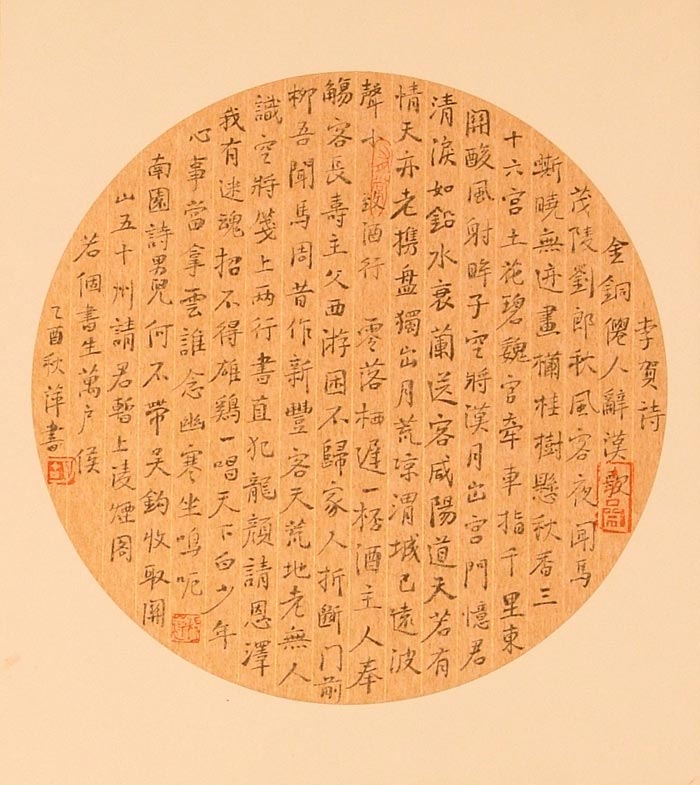 李賀詩
金銅僊人辭漢歌
茂陵劉郎秋風客夜聞馬
嘶曉無迹畫欄桂樹懸秋香三
十六宮土花碧魏官牽車指千里東
關酸風射眸子空將漢月出宮門憶君
清淚如鉛水衰蘭送客咸陽道天若有
情天亦老携盤獨出月荒凉渭城已遠波
聲小 致酒行 零落栖遲一杯酒主人奉
觴客長壽主父西游困不歸家人折斷門前
柳吾聞馬周昔作新豐客天荒地老無人
識空將箋上兩行書直犯龍顏請恩澤
我有迷魂招不得雄鷄一唱天下白少年
心事當拿雲誰念幽寒坐嗚呃
南園詩男兒何不帶吳鈎收取關
山五十州請君暫上凌煙閣
若個書生萬户侯
乙酉秋萍書